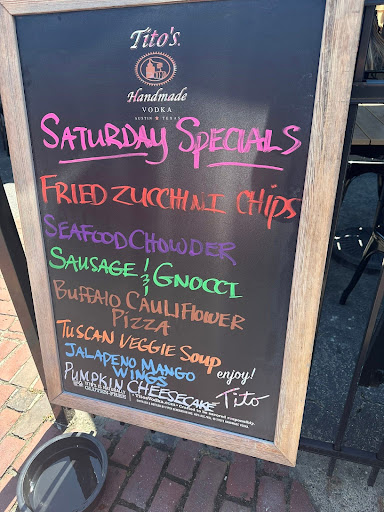 Tito's.
Handmade
VODKA
AUSTIN TEXAS
SATURDAY SPECIALS
FRIED ZUCCHINI CHIPS
SEAFOOD CHOWDER
SAUSAGE & GNOCCI
BUFFALO CAULIFLOWER
PIZZA
TUSCAN VEGGIE SOUP
JALAPENO MANGO
WINGS
PUMPKIN CHEESECAKE
enjoy!
Tito